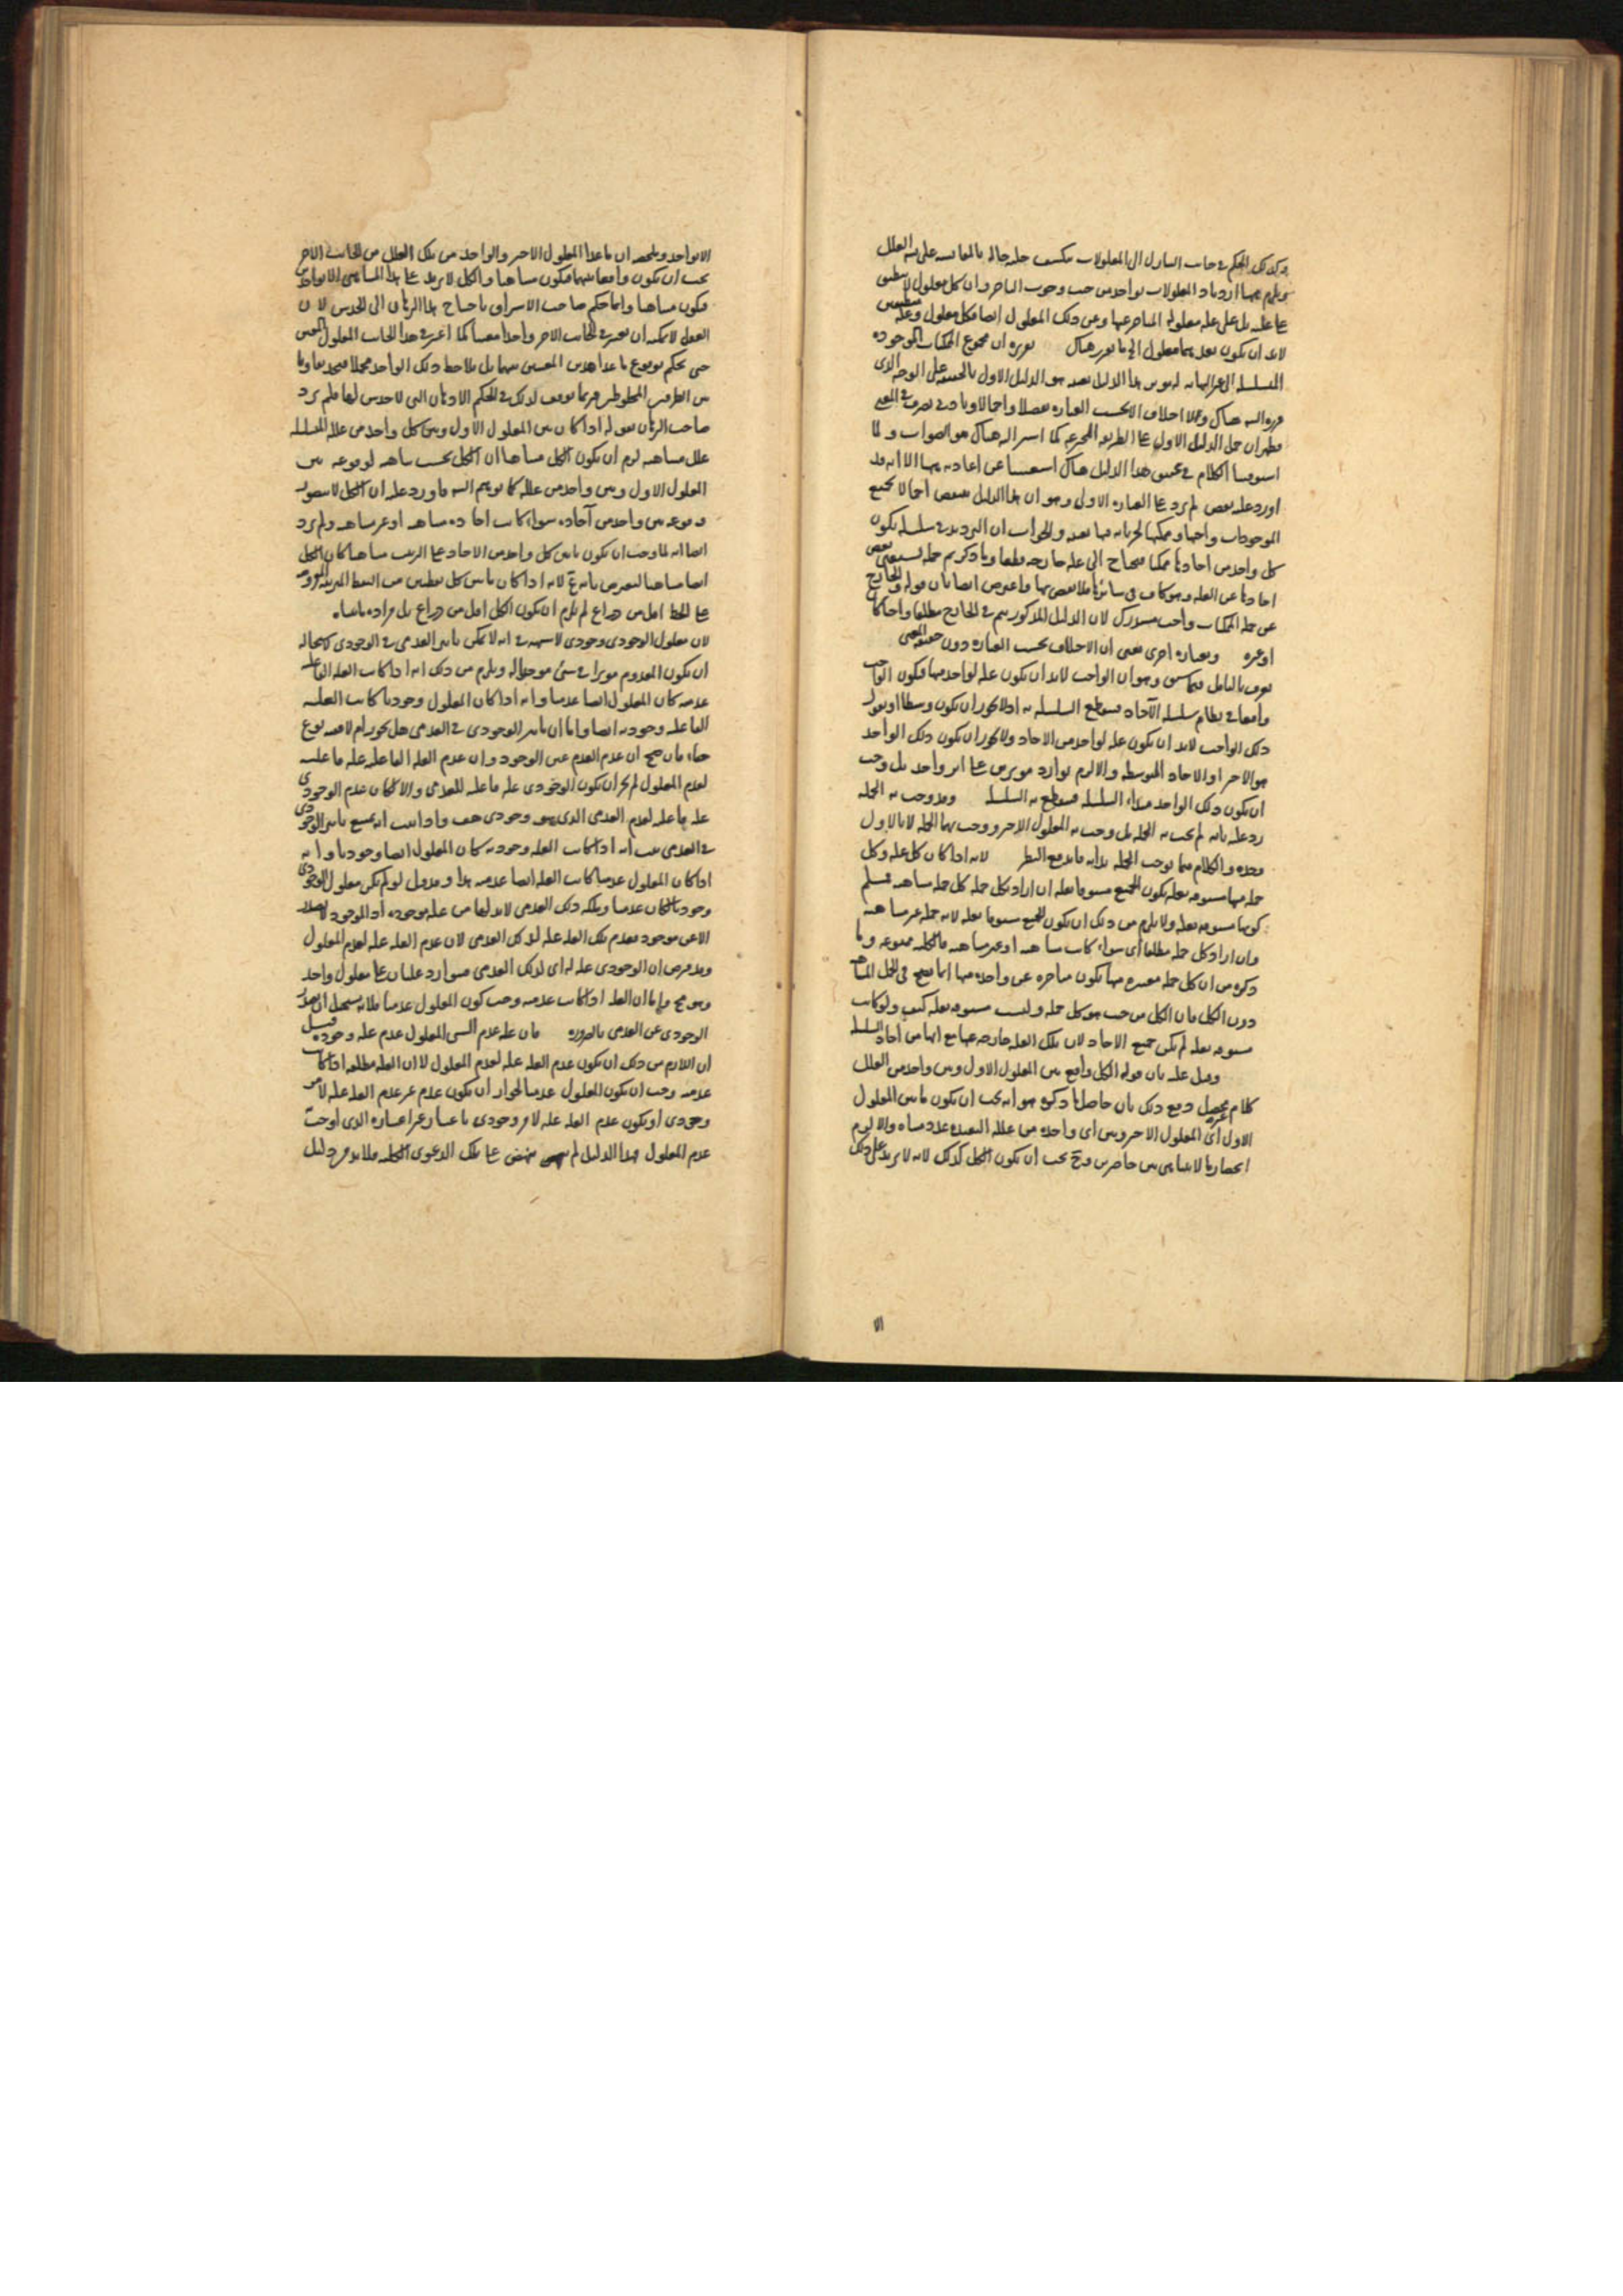 وكذلك الحكم في جانب التنازل الى المعلولات ينكشف جلية حاله بالمقايسة على العلل
ويلزم ازدياد المعلولات بواحد من حيث وجوب التاخر وان كل معلول لا ينطبق
على علته بل على علة معلوله المتاخر عنها وعن ذلك المعلول ايضا فكل معلول وعلة
لابد ان يكون بعدهما معلول الى ما تقرر هناك تقريره ان مجموع الممكنات الموجودة
المتسلسلة الى غير النهاية هذا الدليل بعينه هو الدليل الاول بالحقيقة على الوجه الذى
قررناه هناك ولا اختلاف الا بحسب العبارة تفصيلا واجمالا
فظهر ان حمل الدليل الاول على الطريقة كما اشرنا اليه هناك هو الصواب ولما
استوفينا الكلام في تحقيق هذا الدليل هناك استغنينا عن اعادته ههنا الا انه قد
اورد عليه نقض لم يرد على العبارة الاولى وهو ان هذا الدليل منقوض اجمالا بجميع
الموجودات واجبها وممكنها لجريانه فيها بعينه والجواب ان الترديد في سلسلة يكون
كل واحد من احادها ممكنا فيحتاج الى علة خارجة قطعا وما ذكرتم جملة يستغنى بعض
احادها عن العلة وهو كاف في سائرها فلا نقض بها واعترض ايضا بان قوله والخارج
عن جملة الممكنات واجب مستدرك لان الدليل المذكور يتم في الخارج مطلقا واجبا كان
او غيره وبعبارة اخرى يعنى ان الاختلاف بحسب العبارة دون حقيقة المعنى
يعرف بالتامل فيما سبق وهو ان الواجب لابد ان يكون علة لواحد منها فيكون الواجب
واقعا في نظام سلسلة الآحاد فينقطع السلسلة به اذ لا يجوز ان يكون وسطا او نقول
ذلك الواجب لابد ان يكون علة لواحد من الاحاد ولا يجوز ان يكون ذلك الواحد
هو الاخر او الاحاد المتوسطة والا لزم توارد موثرين على اثر واحد بل وجب
ان يكون ذلك الواحد مبداء السلسلة فينقطع به السلسلة وقد وجب به الجملة
رد عليه بانه لم يجب به الجملة بل وجب به المعلول الاخر ووجب بهما الجملة لا بالاول
وحده والكلام فيما يوجب الجملة بذاته فاندفع النظر لانه اذا كان كل علة وكل
جملة منها مسبوقة بعلة يكون الجميع مسبوقا بعلة ان اراد بكل جملة كل جملة متناهية فمسلم
كونها مسبوقة بعلة ولا يلزم من ذلك ان يكون الجميع مسبوقا بعلة لانه جملة غير متناهية
وان اراد كل جملة مطلقا اى سواء كانت متناهية او غير متناهية فالكلية ممنوعة وما
ذكره من ان كل جملة معينة منها يكون متاخرة عن واحدة منها انما يصح في الجمل المتناهية
دون الكل فان الكل من حيث هو كل جملة وليست مسبوقة بعلة كيف ولو كانت
مسبوقة بعلة لم يكن جميع الاحاد لان تلك العلة خارجة عنها مع انها من احاد السلسلة
وقيل عليه بان قوله الكل واقع بين المعلول الاول وبين واحد من العلل
كلام غير محصل دفع ذلك بان حاصل ما ذكره هو انه يجب ان يكون ما بين المعلول
الاول اى المعلول الاخر وبين اى واحدة من علله البعيدة عدد متناه والا لزم
انحصار ما لا يتناهى بين حاصرين وح يجب ان يكون الكل كذلك لانه لا يزيد على ذلك
الا
الا بواحد وتلخيصه ان ما عدا المعلول الاخير والواحد من تلك العلل من الجانب الاخر
يجب ان يكون واقعا بينهما فيكون متناهيا والكل لا يزيد على هذا المتناهى الا بواحد
فيكون متناهيا وانما حكم صاحب الاشراق باحتياج هذا البرهان الى الحدس لان
العقل لا يمكنه ان يعين في الجانب الاخر واحدا معينا كما عين في هذا الجانب المعلول المعين
حتى يحكم بوقوع ما عدا هذين المعينين بينهما بل يلاحظ ذلك الواحد مجملا
من الطرفين الملحوظين فربما توقف لذلك في الحكم الاذهان التى لا حدس لها فلم يرد
صاحب البرهان بقوله اذا كان بين المعلول الاول وبين كل واحد من علله المتسلسلة
علل متناهية لزم ان يكون الكل متناهيا ان الكل يجب تناهيه لوقوعه بين
المعلول الاول وبين واحد من علله كما توهم السائل فاورد عليه ان الكل لا يتصور
وقوعه بين واحد من آحاده سواء كانت احاده متناهية او غير متناهية ولم يرد
ايضا انه لما وجب ان يكون ما بين كل واحد من الاحاد على الترتيب متناهيا كان الكل
ايضا متناهيا ليعترض بانه لانه اذا كان ما بين كل نقطتين من النقط المرتبة المفروضة
على الخط اقل من ذراع لم يلزم ان يكون الكل اقل من ذراع بل مراده ما بيناه
لان معلول الوجودى وجودى لا شبهة في انه لا يمكن تاثير العدمى في الوجودى لاستحالة
ان يكون المعدوم موثرا في شئ موجود ويلزم من ذلك انه اذا كانت العلة الفاعلية
عدمية كان المعلول ايضا عدميا وانه اذا كان المعلول وجوديا كانت العلة
الفاعلة وجودية ايضا واما ان تاثير الوجودى في العدمى هل يجوز ام لا ففيه نوع
خفاء فان صح ان عدم العدم عين الوجود وان عدم العلة الفاعلة علة فاعلية
لعدم المعلول لم يجز ان يكون الوجودى علة فاعلة للعدمى والا لكان عدم الوجودى
علة فاعلة لعدم العدمى الذى هو وجودى هف واذا ثبت انه يمتنع تاثير الوجودى
في العدمى ثبت انه اذا كانت العلة وجودية كان المعلول ايضا وجوديا وانه
اذا كان المعلول عدميا كانت العلة ايضا عدمية هذا وقد قيل لو لم يكن معلول الوجودى
وجوديا لكان عدميا وملكة ذلك العدمى لابد لها من علة موجودة اذ الموجود لا يصدر
الا عن موجود فعدم تلك العلة علة لذلك العدمى لان عدم العلة علة لعدم المعلول
وقد فرض ان الوجودى علة له اى لذلك العدمى فتوارد علتان على معلول واحد
وهو مح واما ان العلة اذا كانت عدمية وجب كون المعلول عدميا فلانه يستحيل ان يصدر
الوجودى عن العدمى بالضرورة فان علة عدم الشئ المعلول عدم علة وجوده قيل
ان اللازم من ذلك ان يكون عدم العلة علة لعدم المعلول لا ان العلة مطلقا اذا كانت
عدمية وجب ان يكون المعلول عدميا لجواز ان يكون عدم غير عدم العلة علة لامر
وجودى او يكون عدم العلة علة لامر وجودى باعتبار غير اعتباره الذى اوجب
عدم المعلول فهذا الدليل لم ينهض على تلك الدعوى الكلية فلابد من دليل